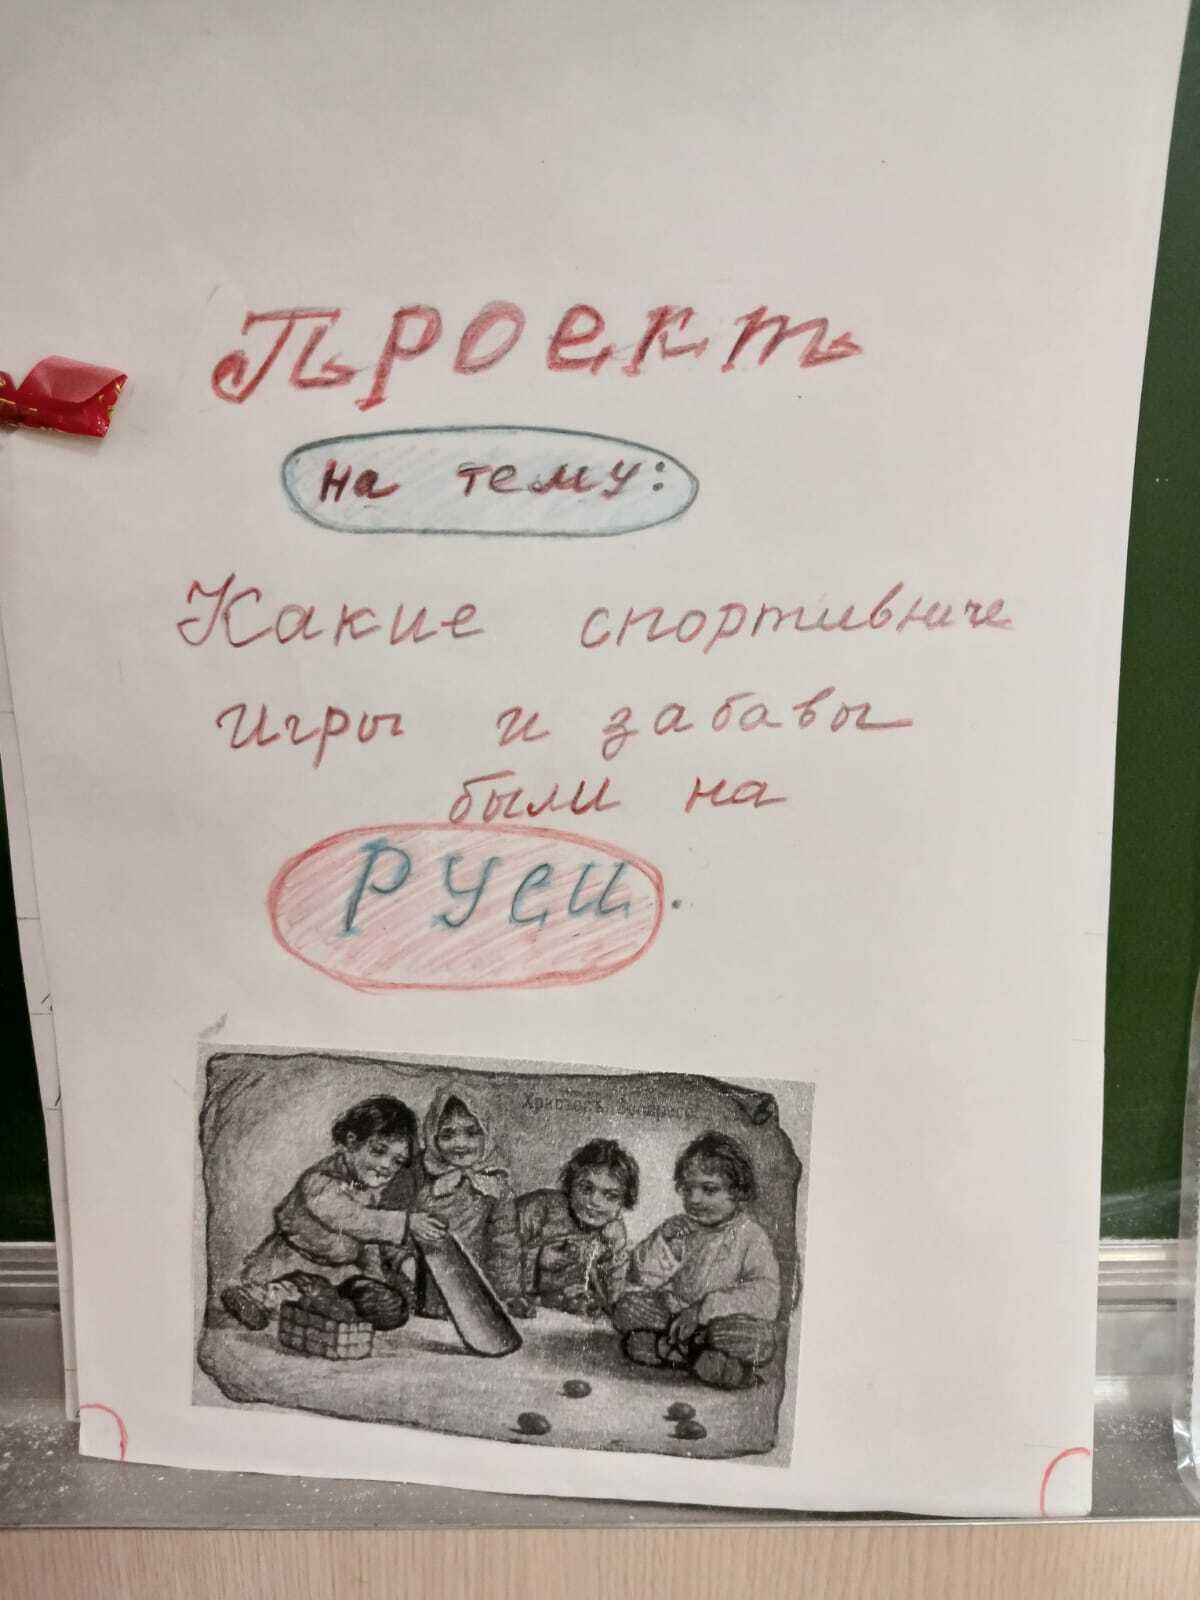 Проект
на тему:
Какие спортивные
игры и забавы
были на
РУСИ.
Христосъ Воскресе